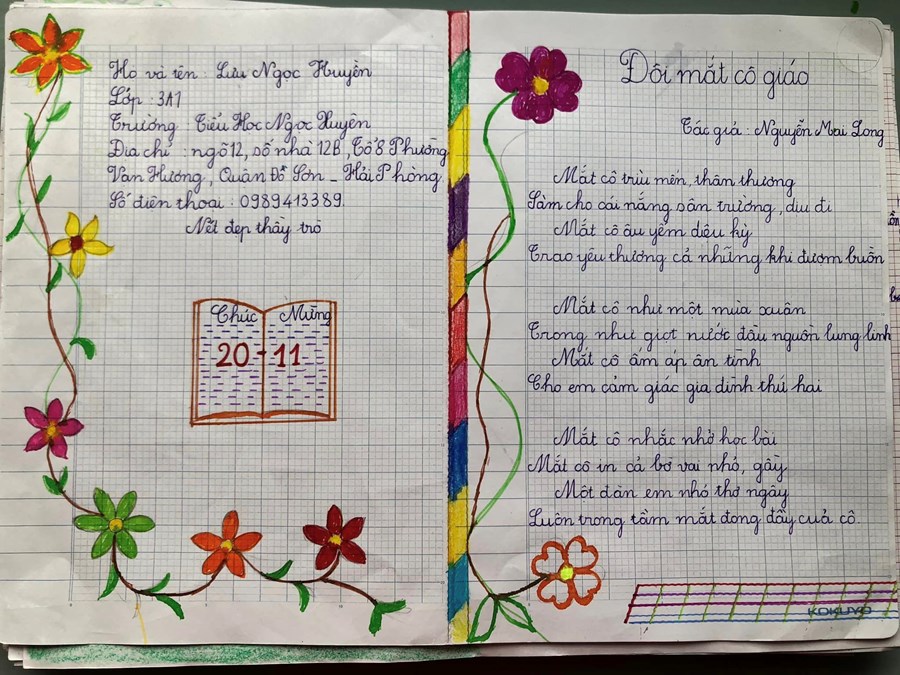 Họ và tên : Lưu Ngọc Huyền
Lớp : 3A1
Trường : Tiểu Học Ngọc Xuyên
Địa chỉ : ngõ 12, số nhà 12B, Tổ 8 Phường
Vạn Hương, Quận Đồ Sơn - Hải Phòng.
Số điện thoại : 0989413389.
Nét đẹp thầy trò
Chúc Mừng
20-11
Đôi mắt cô giáo
Tác giả : Nguyễn Mai Long
Mắt cô trìu mến, thân thương
Làm cho cái nắng sân trường, dịu đi
Mắt cô âu yếm diệu kỳ
Trao yêu thương cả những khi đượm buồn
Mắt cô như một mùa xuân
Trong như giọt nước đầu nguồn lung linh
Mắt cô ấm áp ân tình
Cho em cảm giác gia đình thứ hai
Mắt cô nhắc nhở học bài
Mắt cô in cả bờ vai nhỏ, gầy
Một đàn em nhỏ thơ ngây
Luôn trong tầm mắt đong đầy của cô.
KOKUYO